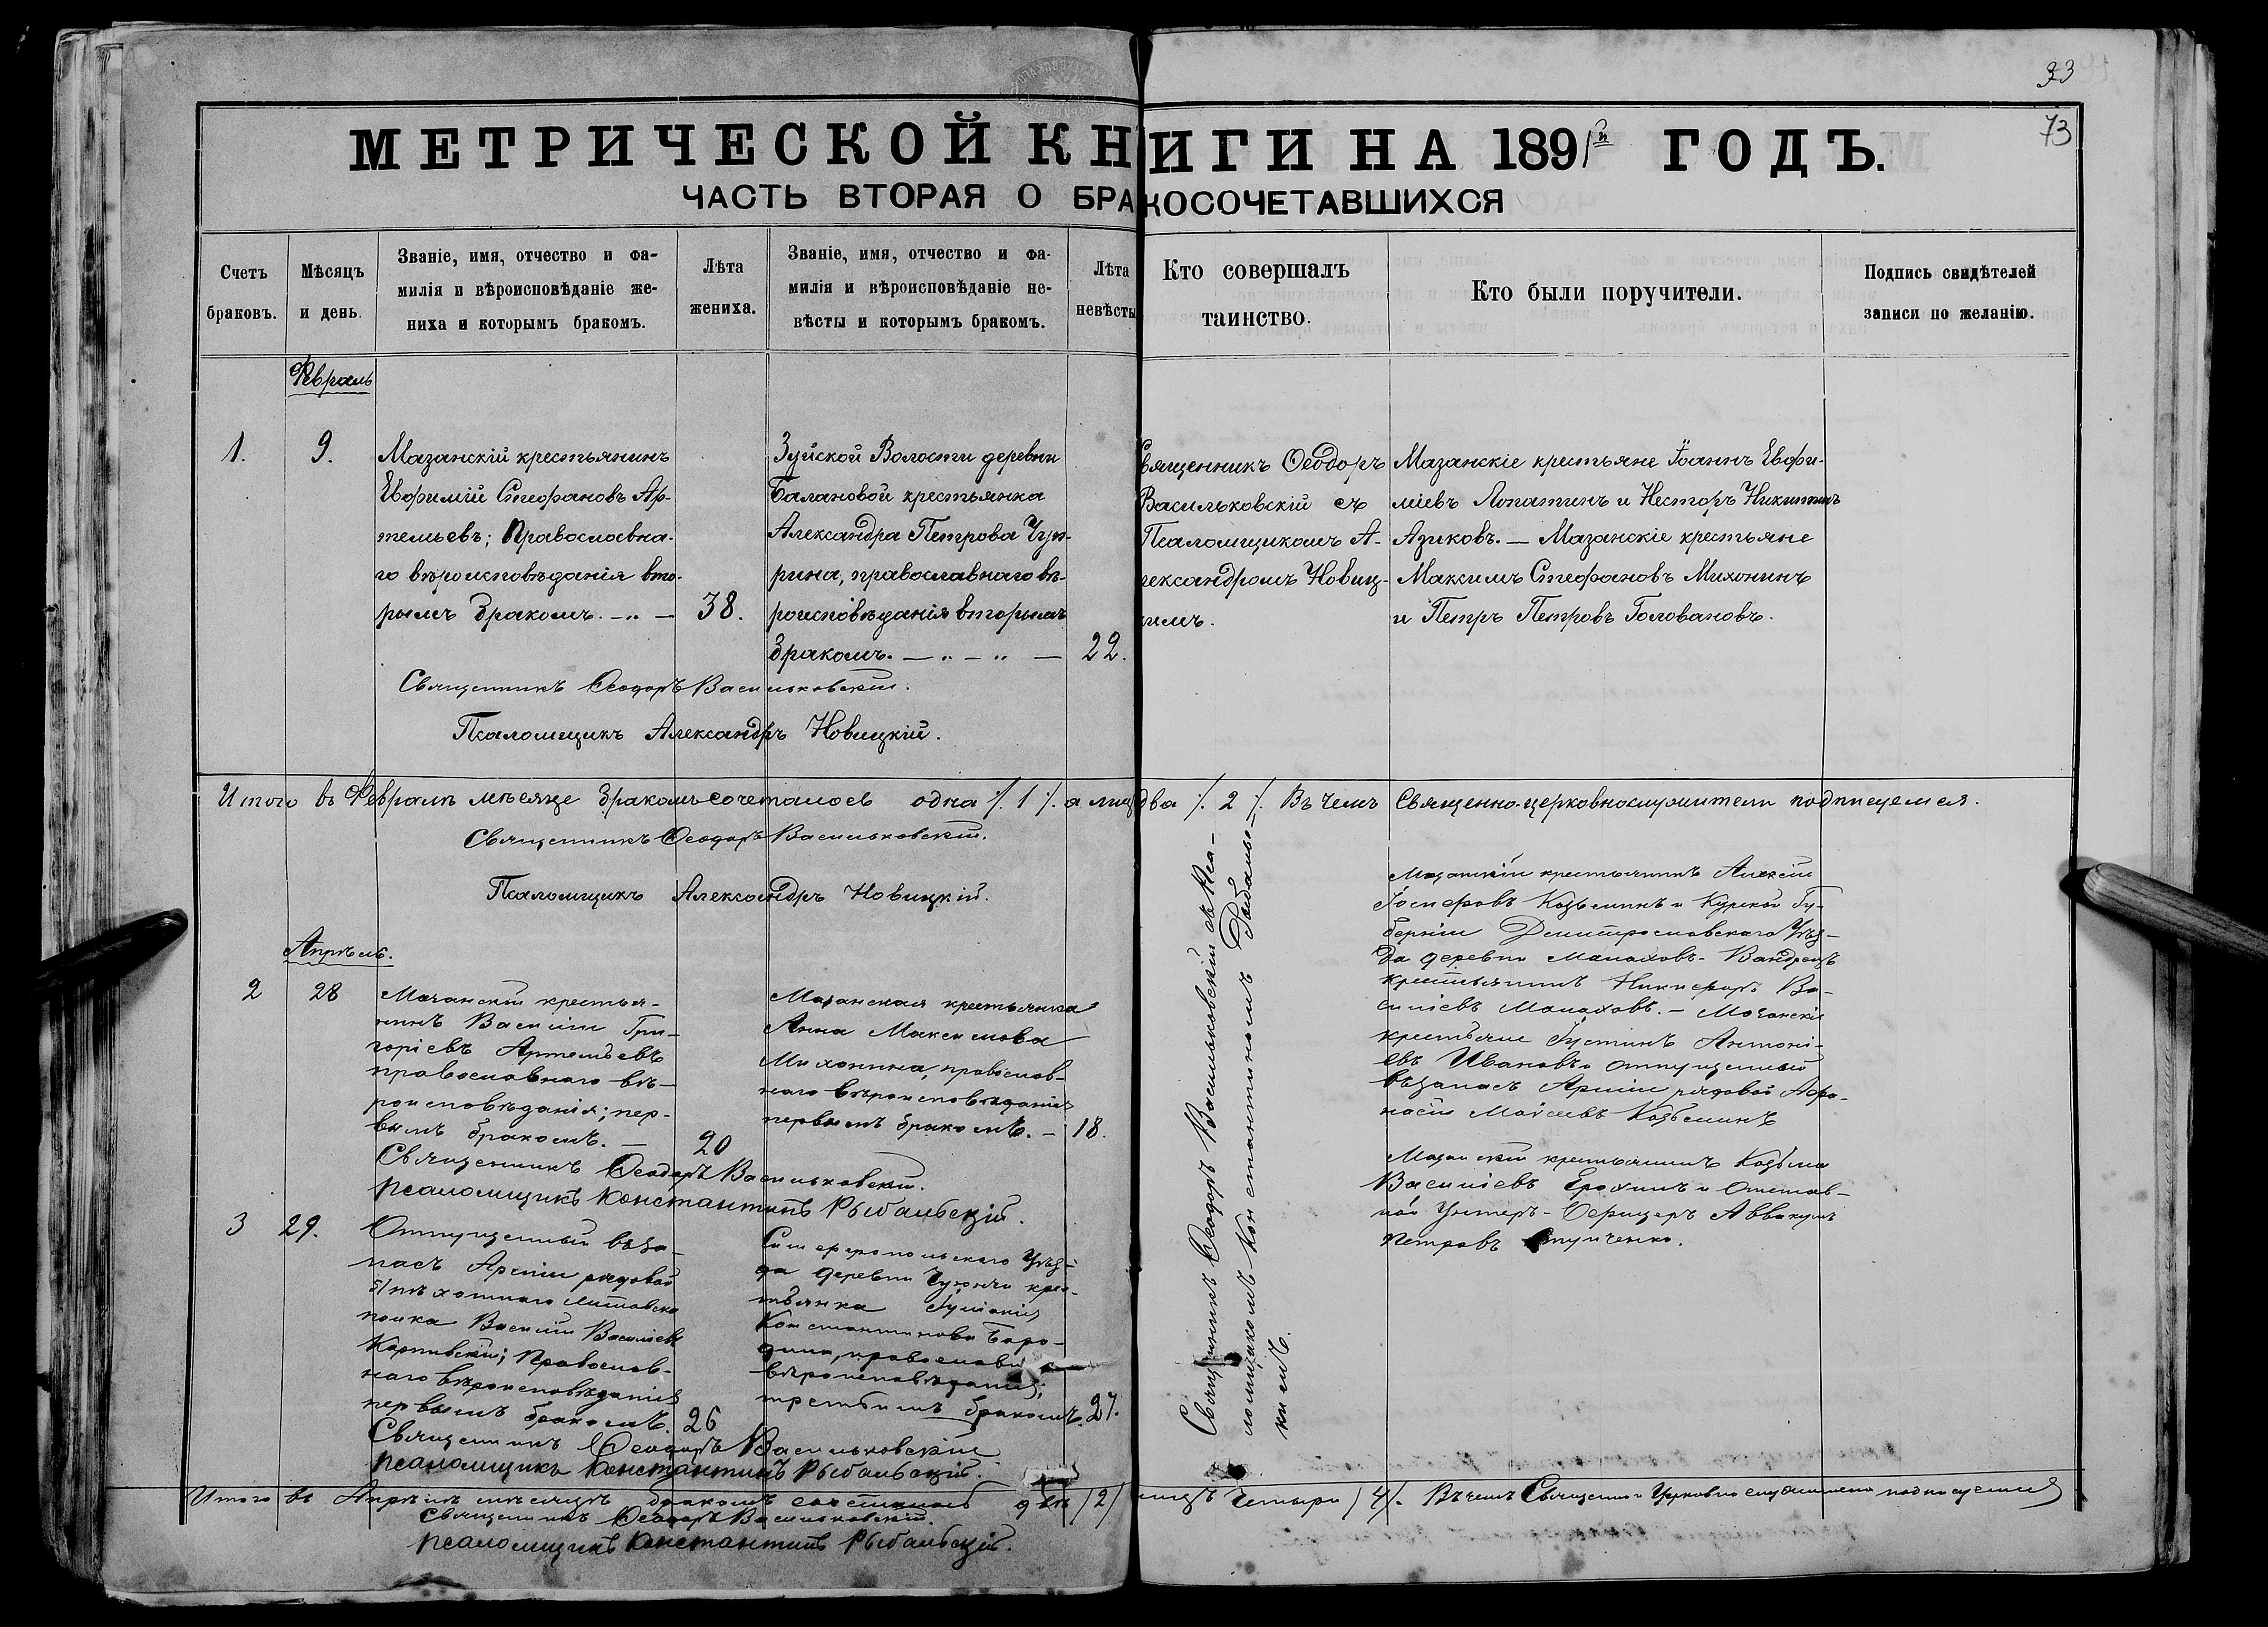 93
73
МЕТРИЧЕСКОЙ КНИГИ НА 1891й ГОДЪ.
ЧАСТЬ ВТОРАЯ О БРАКОСОЧЕТАВШИХСЯ
Счетъ
браковъ.
Мѣсяцъ
и день.
Званіе, имя, отчество и фа-
милія и вѣроисповѣданіе же-
ниха и которымъ бракомъ.
Лѣта
жениха.
Званіе, имя, отчество и фа-
милія и вѣроисповѣданіе не-
вѣсты и которымъ бракомъ.
Лѣта
невѣсты
Кто совершалъ
таинство.
Кто были поручители.
Подпись свидѣтелей
записи по желанію.
Февраль
1.
9.
Мазанскій крестьянинъ
Евфимій Стефановъ Ар-
темьевъ; Православна-
го вѣроисповѣданія вто-
рымъ бракомъ.
38.
Зуйской Волости деревни
Балановой крестьянка
Александра Петрова Чуп-
рина, православнаго вѣ-
роисповѣданія вторымъ
бракомъ.
22.
Священникъ Ѳеодоръ
Васильковскій съ
Псаломщикомъ А-
лександромъ Новиц-
кимъ.
Мазанскіе крестьяне Іоаннъ Евфи-
міевъ Лопатинъ и Несторъ Никитинъ
Азиковъ. — Мазанскіе крестьяне
Максимъ Стефановъ Михонинъ
и Петръ Петровъ Головановъ.
Священникъ Ѳеодоръ Васильковскій.
Псаломщикъ Александръ Новицкій.
Итого въ Февралѣ мѣсяце бракомъ сочеталось одна ٪ 1 ٪ а лицъ два ٪ 2 ٪. Въ чемъ Священно-церковнослужители подписуемся.
Священникъ Ѳеодоръ Васильковскій.
Псаломщикъ Александръ Новицкій.
Апрѣль.
2
28
Мазанскій крестья-
нинъ Василій Гри-
горіевъ Артемьевъ
православнаго вѣ-
роисповѣданія; пер-
вымъ бракомъ. —
20
Мазанская крестьянка
Анна Максимова
Михонина, православ-
наго вѣроисповѣданія
первымъ бракомъ. —
18.
Священникъ Ѳеодоръ Васильковскій съ Пса-
ломщикомъ Константиномъ Рыбальс-
кимъ.
Мазанскій крестьянинъ Алексій
Іосифовъ Козьминъ и Курской Гу-
берніи Дмитрославскаго Уѣз-
да деревни
крестьянинъ Никифоръ Ва-
силіевъ Малаховъ. — Мазанскіе
крестьяне Іустинъ Антоні-
евъ Ивановъ и отпущенный
въ запасъ Арміи рядовой Афа-
насій Моісеевъ Козьминъ
Священникъ Ѳеодоръ Васильковскій.
Псаломщикъ Константинъ Рыбальскій.
3
29.
Отпущенный въ за-
пасъ Арміи рядовой
пѣхотнаго Литовска
полка Василій Василіевъ
Карпивскій; Православ-
наго вѣроисповѣданія
первымъ бракомъ.
26
Симферопольскаго Уѣз-
да деревни крес-
тьянка Іуліанія
Константинова Боро-
дина, православн
вѣроисповѣданія;
третьимъ бракомъ.
27.
Мазанскій крестьянинъ Козьма
Василіевъ Ерохинъ и Отстав-
ной Унтеръ-Офицеръ Аввакумъ
Петровъ Ступченко.
Священникъ Ѳеодоръ Васильковскій
Псаломщикъ Константинъ Рыбальскій.
Итого въ Апрѣлѣ мѣсяцѣ бракомъ сочеталось двѣ /2/ лицъ четыри /4/. Въ чемъ Священно Церковно служители подписуемся
Священникъ Ѳеодоръ Васильковскій.
Псаломщикъ Константинъ Рыбальскій.